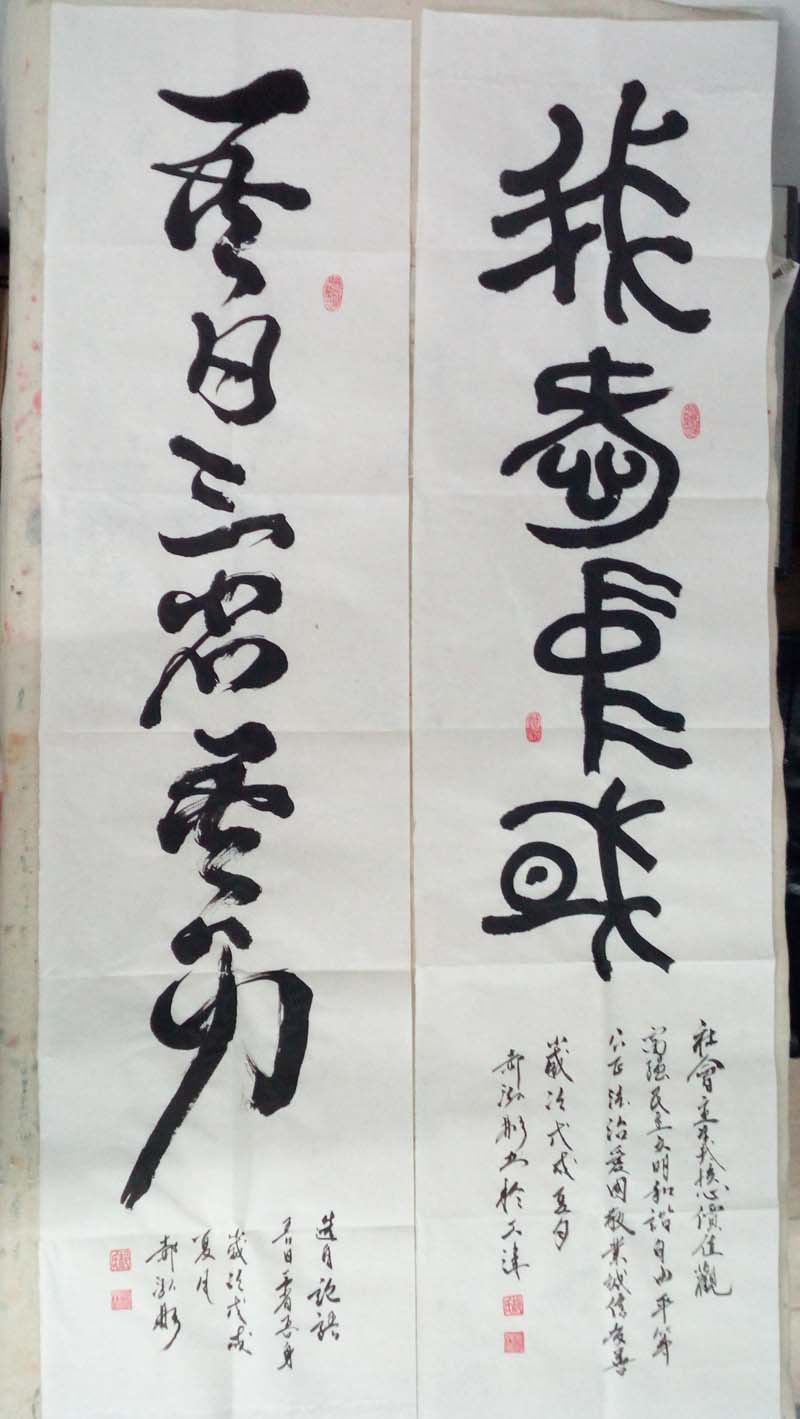 我愛中國
社會主義核心價值觀
富强民主文明和諧自由平等
公正法治爱国敬業誠信友善
歲次戊戌夏月
郝泓 书於天津
吾日三省吾身
选自論語
吾日三省吾身
歲次戊戌
夏月
郝泓